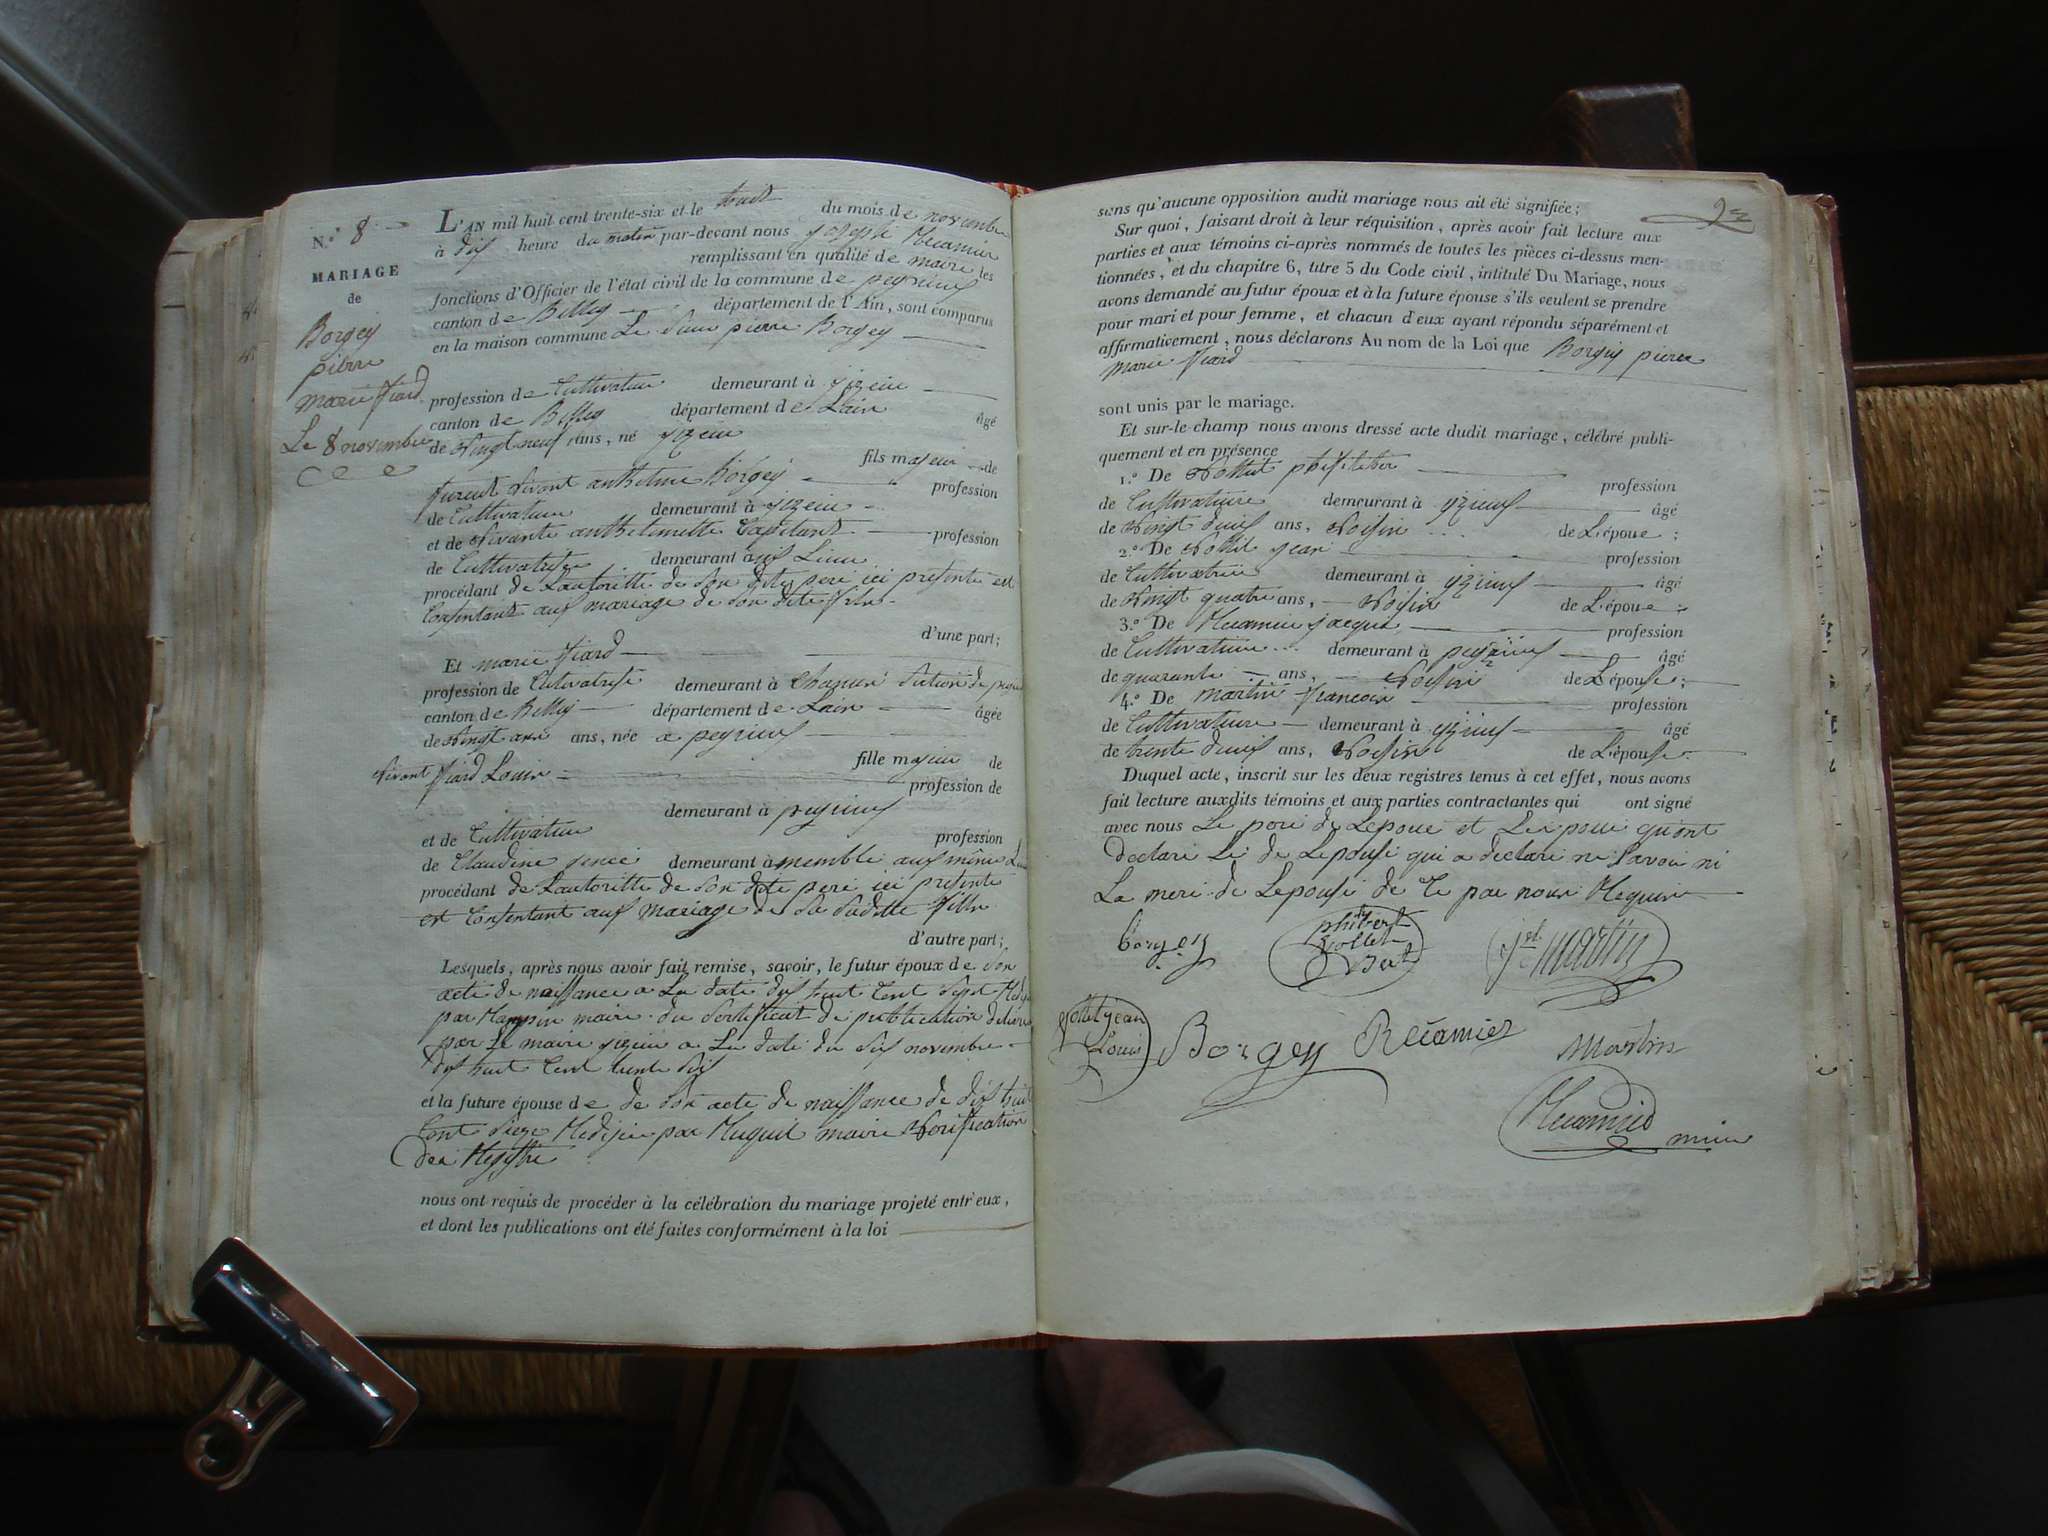 N.º 8
MARIAGE
de
Borgey
pierre
marie fiard
Le 8 novembre
L'AN mil huit cent trente-six et le huit du mois de novembre
à dix heure du matin par-devant nous joseph Recamier
remplissant en qualité de maire les
fonctions d'Officier de l'état civil de la commune de peyrieux
canton de Belley département de l'Ain, sont comparus
en la maison commune Le Sieur pierre Borgey
profession de Cultivateur demeurant à yzieu
canton de Belley département de Lain âgé
de vingt neuf ans, né yzieu
fils majeur de
furent vivant anthelme Borgey profession
de Cultivateur demeurant à yzieu
et de vivante anthelmette Capitant profession
de Cultivatrise demeurant aux Lieux
procédant de Lautoritté de son dite pere ici présente et
Consentant aux mariage de son dite fils
d'une part;
Et marie fiard
profession de Cultivatrise demeurant à section de
canton de Belley département de Lain âgée
de vingt ans, née a peyrieux
fille majeur de
vivant fiard Louis profession de
demeurant à peyrieux
et de Cultivateur profession
de Claudine demeurant à ensemble aux même
procédant de Lautoritte de son dite pere ici présente
et Consentant aux mariage de Sa Suditte fille
d'autre part;
Lesquels, après nous avoir fait remise, savoir, le futur époux de son
acte de naissance a La date dix huit Cent Sept
par maire du Sertificat de publication délivré
par Le maire yzieu a La date du Six novembre
dix huit Cent trente Six
et la future épouse de de son acte de naissance de dix huit
Cent Sieze par maire vérification
des Registre
nous ont requis de procéder à la célébration du mariage projeté entr'eux,
et dont les publications ont été faites conformément à la loi
sans qu'aucune opposition audit mariage nous ait été signifiée;
Sur quoi, faisant droit à leur réquisition, après avoir fait lecture aux
parties et aux témoins ci-après nommés de toutes les pièces ci-dessus men-
tionnées, et du chapitre 6, titre 5 du Code civil, intitulé Du Mariage, nous
avons demandé au futur époux et à la future épouse s'ils veulent se prendre
pour mari et pour femme, et chacun d'eux ayant répondu séparément et
affirmativement, nous déclarons Au nom de la Loi que Borgey pierre
marie fiard
sont unis par le mariage.
Et sur-le champ nous avons dressé acte dudit mariage, célébré publi-
quement et en présence
1.º De Vollet profession
de Cultivateure demeurant à yzieux âgé
de vingt deux ans, voisin de L'époue;
2.º De Vollet jean profession
de demeurant à yzieux âgé
de vingt quatre ans, voisin de L'époue;
3.º De Recamier jacques profession
de Cultivateure demeurant à peyrieux âgé
de quarante ans, voisin de L'épouse;
4.º De martin francois profession
de Cultivateure demeurant à yzieux âgé
de trente deux ans, voisin de L'épouse.
Duquel acte, inscrit sur les deux registres tenus à cet effet, nous avons
fait lecture auxdits témoins et aux parties contractantes qui ont signé
avec nous Le pere de Lepoue et Lepoue qu'ont
declare Le de Lepouse qui a declare ne Savoir ni
La mere de Lepouse de Ce par nous Requis
borgey
philibert
vollet
jsh martin
vollet jean
Louis
Borgey
Récamier
martin
Recamier maire